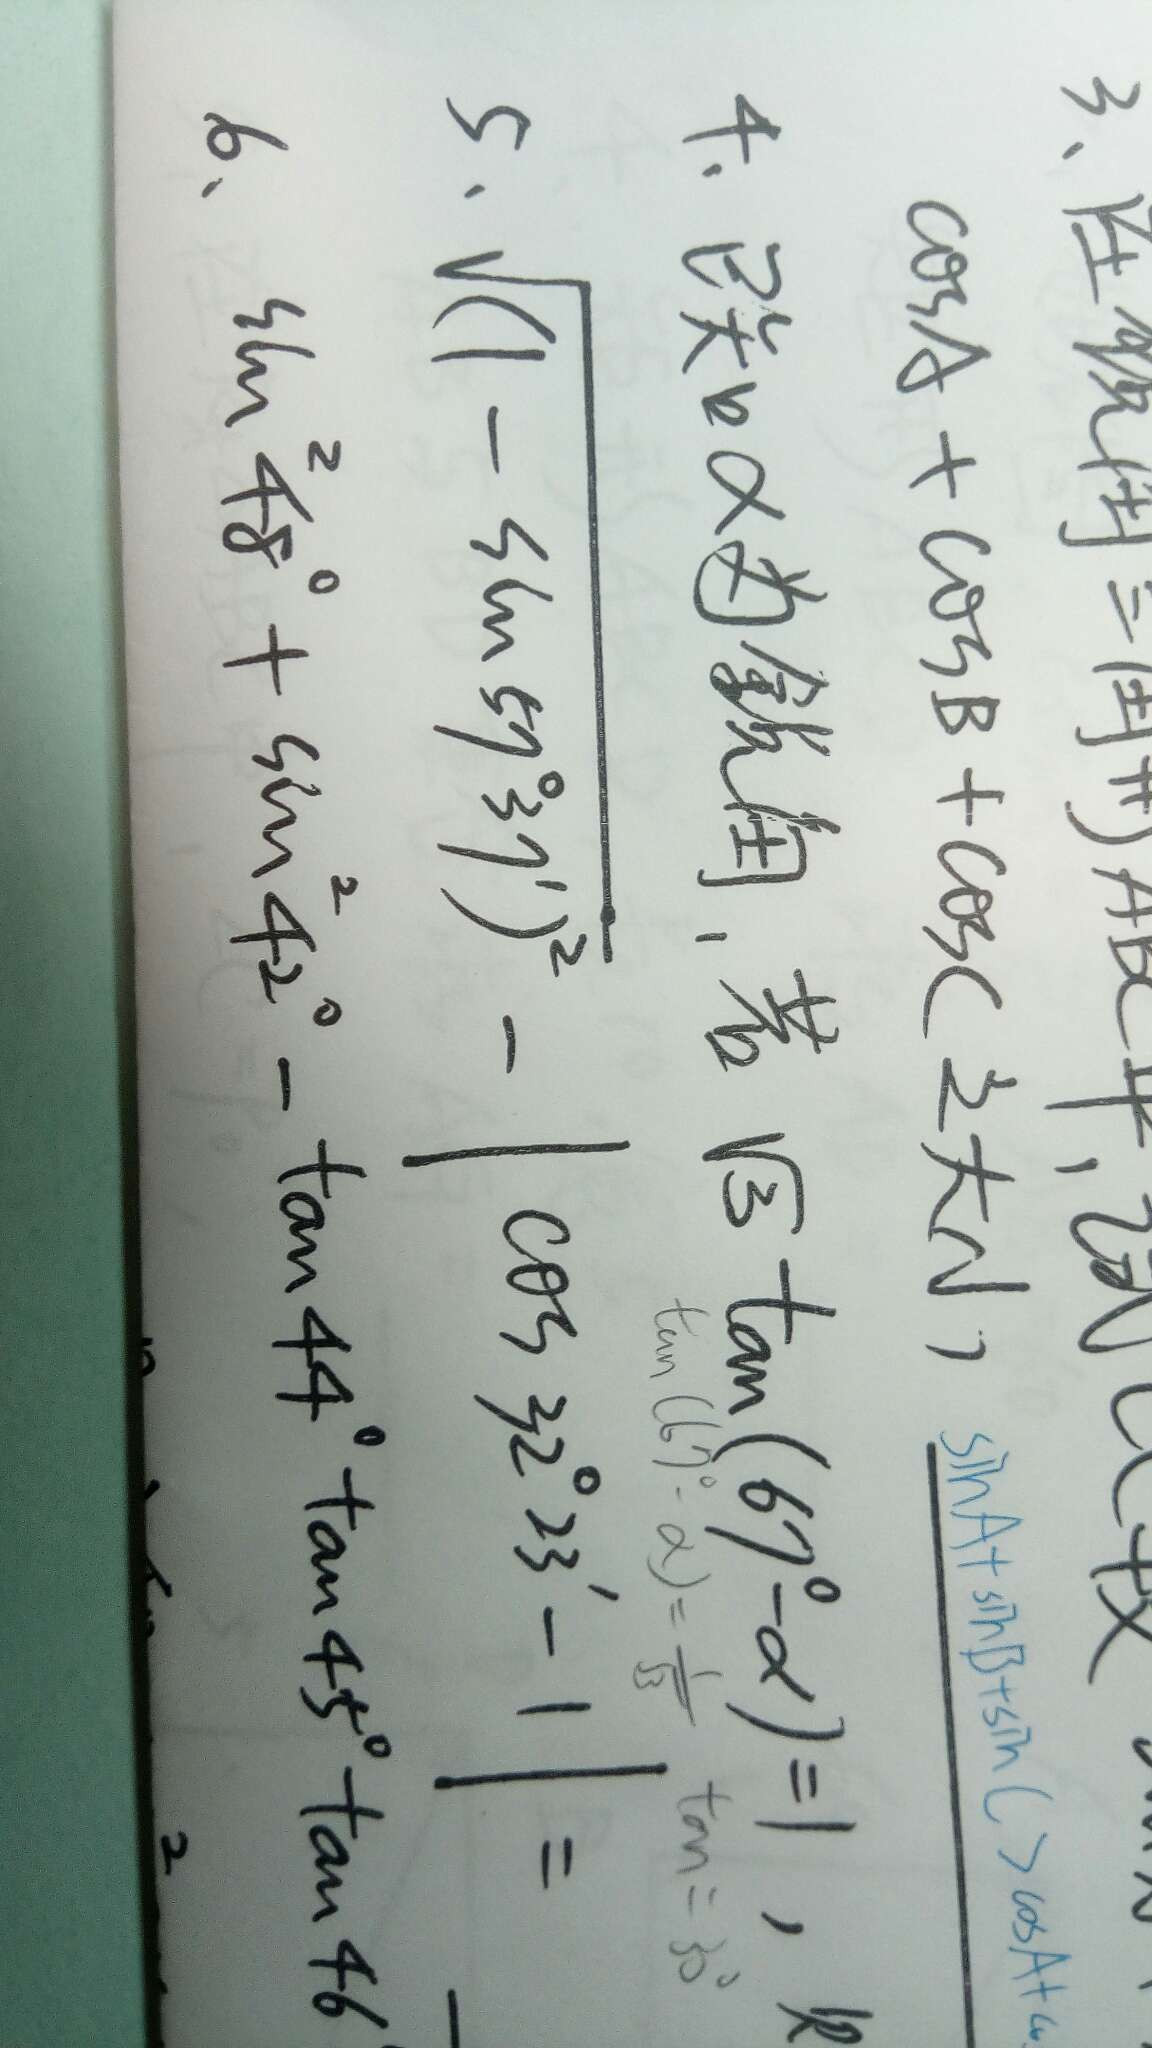 3、在锐角三角形ABC中，试比较
cosA + cosB + cosC 之大小，sinA+sinB+sinC>cosA+
4、已知α为锐角，若√3 tan(67°-α)=1，
tan(67°-α)=1/√3 tan=30°
5、√(1-sin57°37')² - |cos32°23'-1| =
6、sin²48° + sin²42° - tan44° tan45° tan46°
2